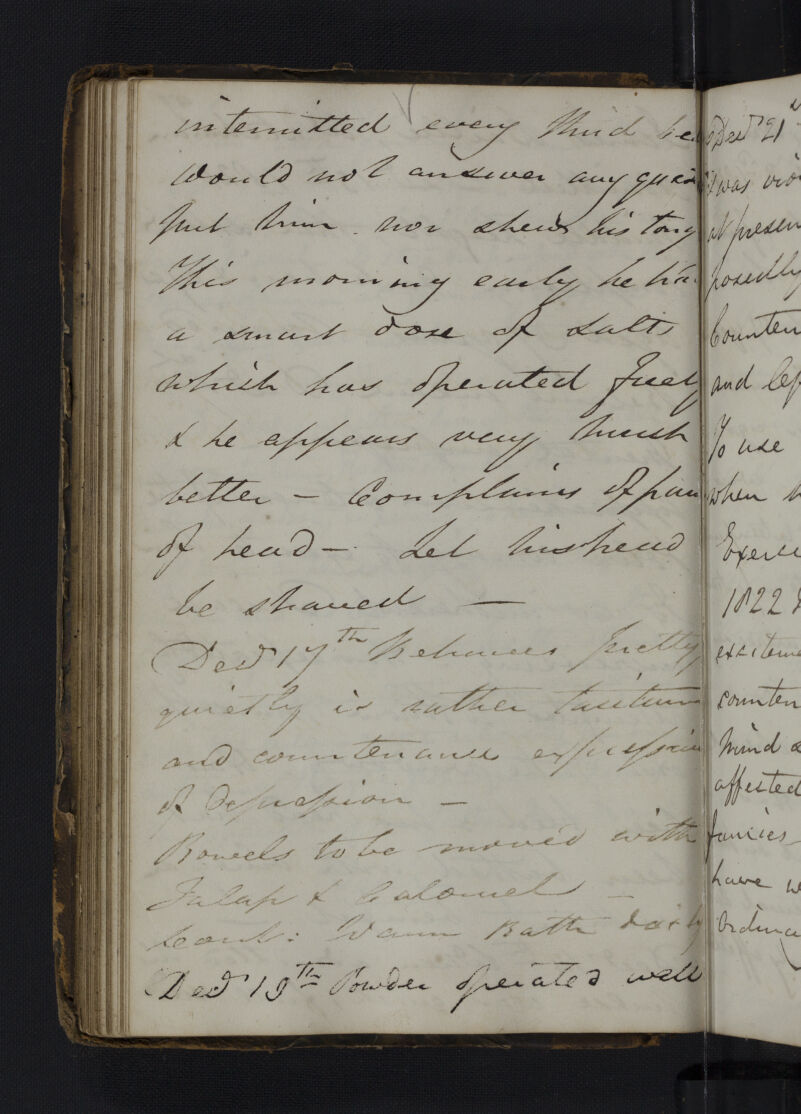 intermitted every third be
would not answer any ques
put him nor shew his tong
This morning early he ha
a smart dose of salts
which has operated freely
& he appears very much
better — Complains of pain
of head — Let his head
be shaved —
Decr 17th Behaves pretty
quietly is rather taciturn
and countenance expressive
of depression —
Bowels to be moved with
Jalap & Calomel —
Cont: Warm Bath daily
Decr 19th Powder operated well
Decr 21
was vio
at presen
posedly
Counten
and lef
To use
when
Exerci
1822
exciteme
counten
Mind
affected
fancies
have
Ordina